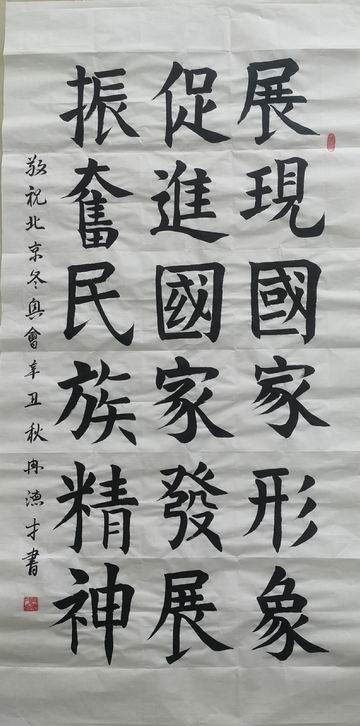 展現國家形象
促進國家發展
振奮民族精神
敬祝北京冬奥會辛丑秋冉德才書